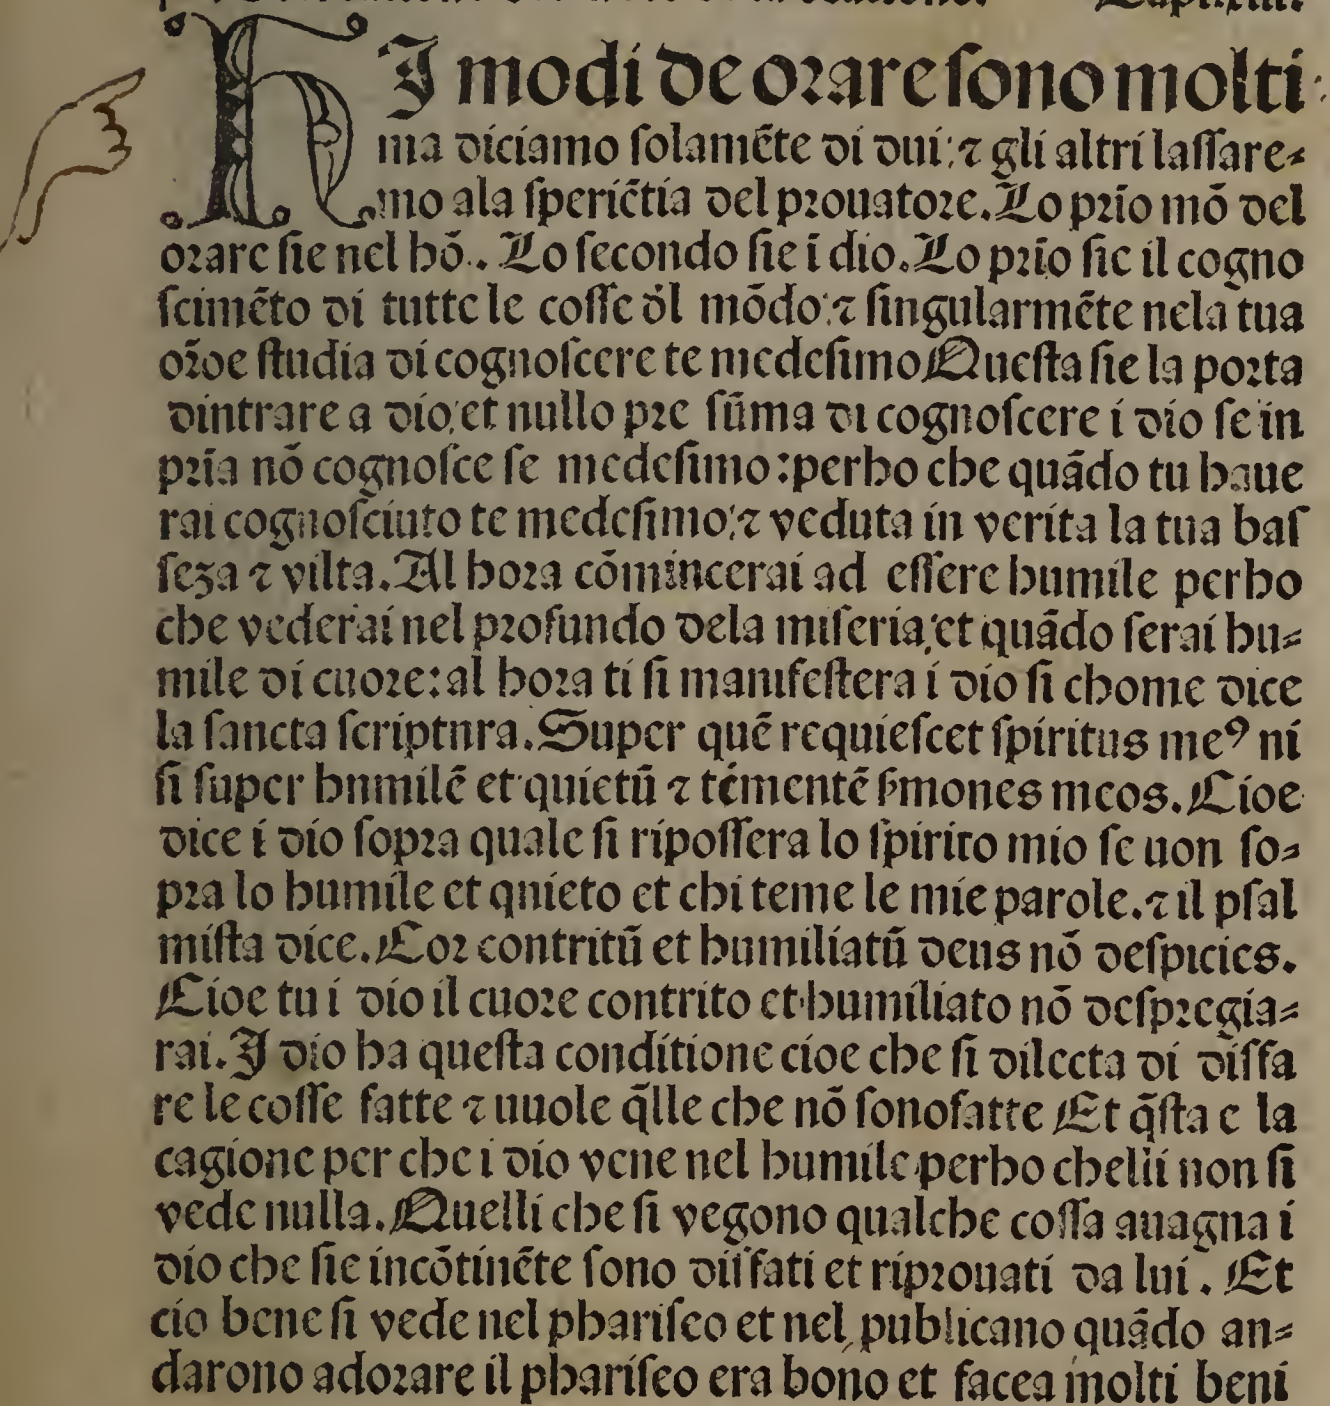 HI modi de orare sono molti
ma diciamo solamēte di dui: ⁊ gli altri lassare⸗
mo ala speriētia del prouatore. Lo prīo mō del
orare sie nel hō.. Lo secondo sie i dio. Lo prīo sie il cogno
scimēto di tutte le cosse dl̄ mōdo: ⁊ singularmēte nela tua
orōe studia di cognoscere te medesimo Questa sie la porta
dintrare a dio: et nullo pre sūma di cognoscere i dio se in
prīa nō cognosce se medesimo: perho che quādo tu haue
rai cognosciuto te medesimo: ⁊ veduta in verita la tua bas
seza ⁊ vilta. Al hora cōmincerai ad essere humile perho
che vederai nel profundo dela miseria: et quādo serai hu⸗
mile di cuore: al hora ti si manifestera i dio si chome dice
la sancta scriptnra. Super quē requiescet spiritus meꝰ ni
si super hnmilē et quietū ⁊ témentē s̄mones meos. Cioe
dice i dio sopra quale si ripossera lo spirito mio se non so⸗
pra lo humile et qnieto et chi teme le mie parole. ⁊ il psal
mista dice. Cor contritū et humiliatū deus nō despicies.
Cioe tu i dio il cuore contrito et humiliato nō despregia⸗
rai. I dio ha questa conditione cioe che si dilecta di disfa
re le cosse fatte ⁊ uuole q̄lle che nō sono fatte Et q̄sta e la
cagione per che i dio vene nel humile perho chelii non si
vede nulla. Quelli che si vegono qualche cossa auagna i
dio che sie incōtinēte sono disfati et riprouati da lui. Et
cio bene si vede nel phariseo et nel publicano quādo an⸗
darono adorare il phariseo era bono et facea molti beni